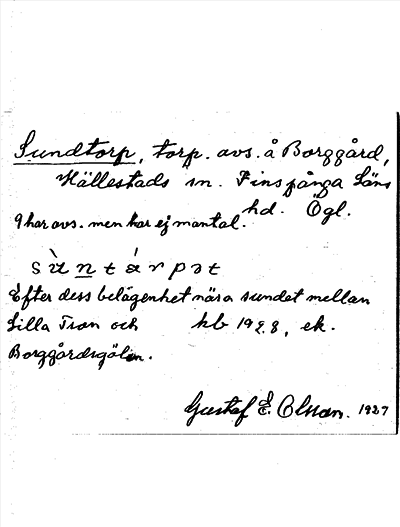 Sundtorp, torp. avs. å Borggård,
Hällestads sn. Finspånga Läns
hd. Ögl.
9 har avs. men har ej mantal.
sùntárpət
Efter dess belägenhet nära sundet mellan
Lilla Tron och hb 1928, ek.
Borggårdsgölen.
Gustaf E. Olsson. 1927